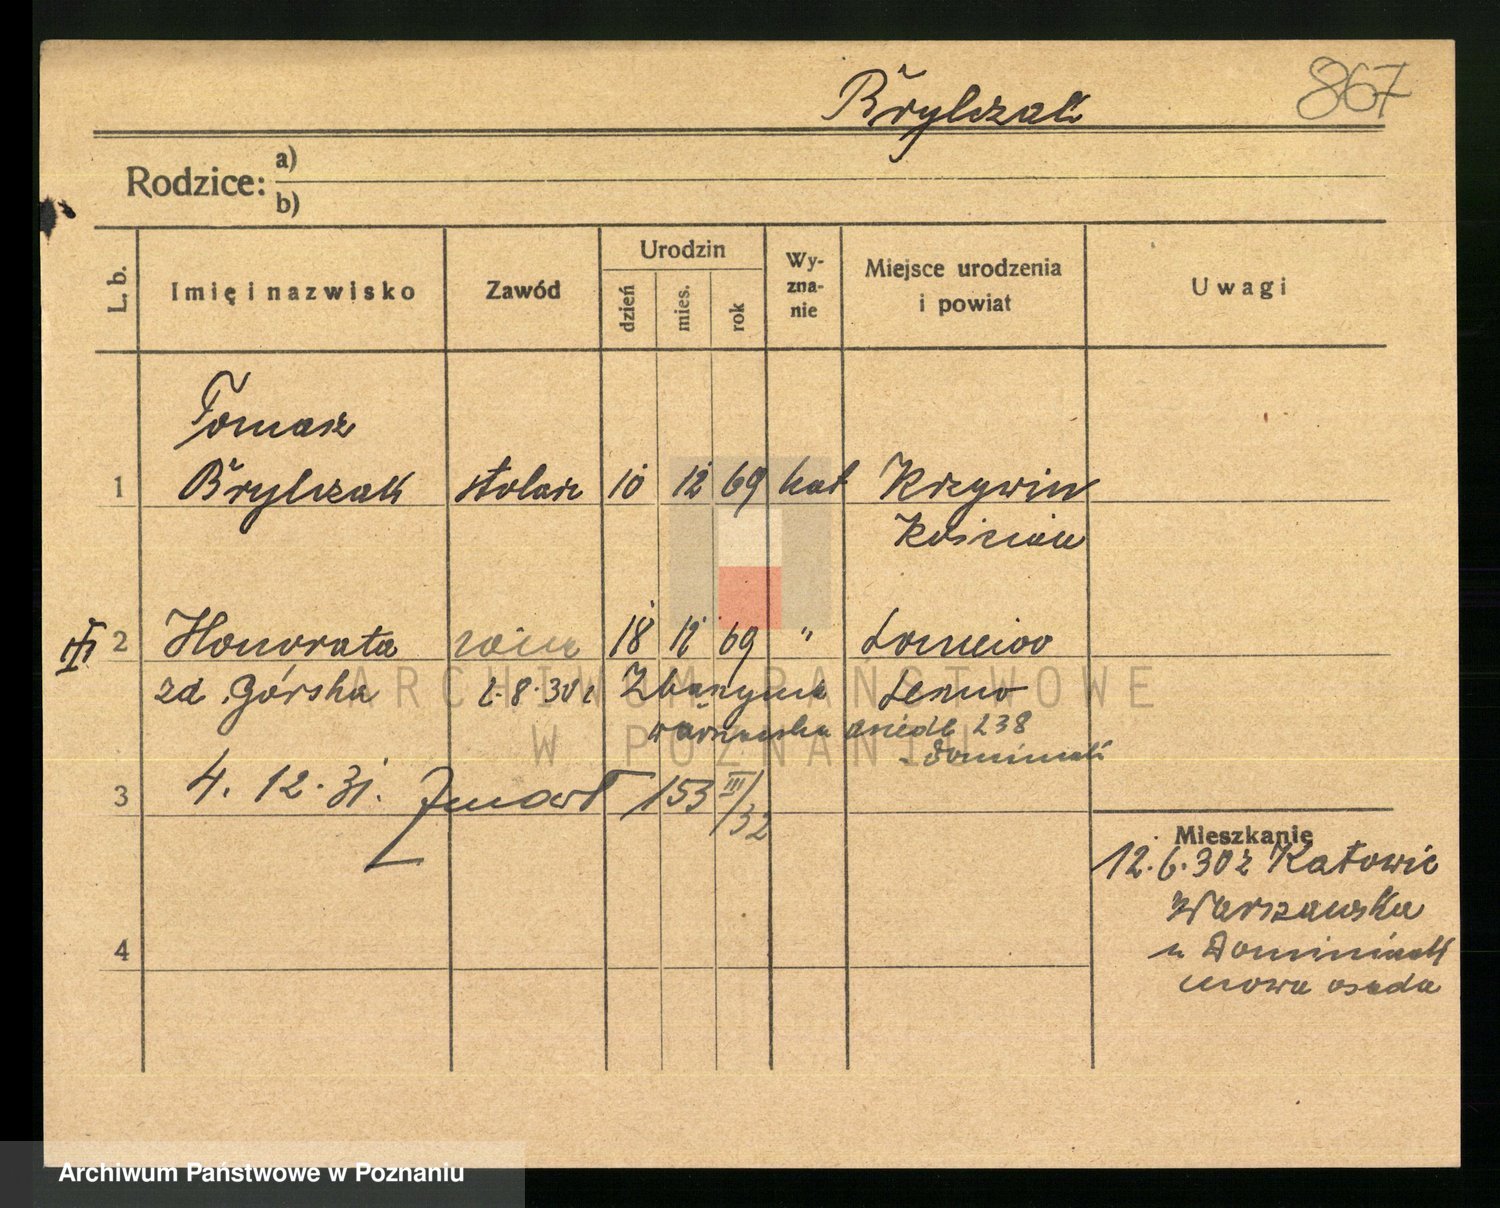 Brylczak 867
Rodzice: a)
b)
L. b.
Imię i nazwisko
Zawód
Urodzin
dzień
mies.
rok
Wy-
zna-
nie
Miejsce urodzenia
i powiat
Uwagi
Tomasz
1 Brylczak stolarz 10 12 69 kat Krzywin
Kościan
III 2 Honorata 18 12 69 "
zd. Górska Leszno
osiedl 238
Dominiak
3 4. 12. 31. Zmarł 153 III/32
Mieszkanie
12.6.30 z Katowic
Warszawska
u Dominiak
nowa osada
4
ARCHIWUM PAŃSTWOWE
W POZNANIU
Archiwum Państwowe w Poznaniu